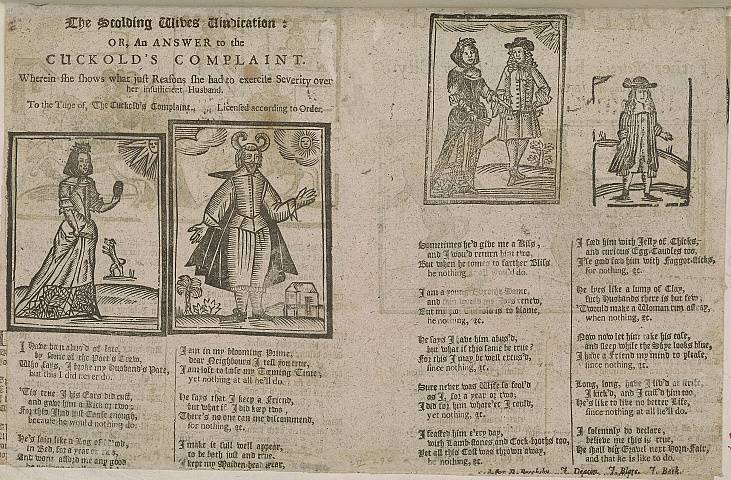 The Scolding Wives Vindication:
OR, An ANSWER to the
CUCKOLD'S COMPLAINT.
Wherein she shows what just Reasons she had to exercise Severity over
her insufficient Husband.
To the Tune of, The Cuckold's Complaint. Licensed according to Order.
I Have been abus'd of late,
by some of the Poet's Crew,
Who says, I broke my Husband's Pate,
but this I did never do.
'Tis true, I his Ears did cuff,
and gave him a Kick or two;
For this I had just Cause enough,
because he would nothing do.
He'd lain like a Log of
in Bed, for a year or two,
And wont afford me any good
he nothing
I am in my blooming Prime,
dear Neighbours I tell you true,
I am loth to lose my Teeming Time,
yet nothing at all he'll do.
He says that I keep a Friend,
but what if I did keep two,
There's no one can me discommend,
for nothing, &c.
I make it full well appear,
to be both just and true,
I kept my Maiden-head year,
Sometimes he'd give me a Kiss,
and I wou'd return him two,
But when he comes to farther Bliss
he nothing do.
I am a young Dame,
and renew,
But my is to blame,
he nothing, &c.
He says I have him abus'd,
but what if this same be true?
For this I may be well excus'd,
since nothing, &c.
Sure never was Wife so fool'd
as I, for a year or two;
I did for him whate'er I could,
yet nothing, &c.
I feasted him e'ery day,
with Lamb-stones and Cock-broths too,
Yet all this Cost was thrown away,
he nothing, &c.
I fed him with Jelly of Chicks,
and curious Egg-Caudles too,
I'se feed him with Faggot-sticks,
for nothing, &c.
He lyes like a lump of Clay,
such Husbands there is but few,
'Twould make a Woman run astray,
when nothing, &c.
Now now let him take his ease,
and sleep while the Skye looks blue,
I have a Friend my mind to please,
since nothing, &c.
Long, long, have I liv'd at strife,
I kick'd, and I cuff'd him too,
He's like to live no better Life,
since nothing at all he'll do.
I solemnly do declare,
believe me this is true,
He shall dig Gravel next Horn-Fair,
and that he is like to do.
for P. Brooksby. J. Deacon. J. Blare. J. Back.